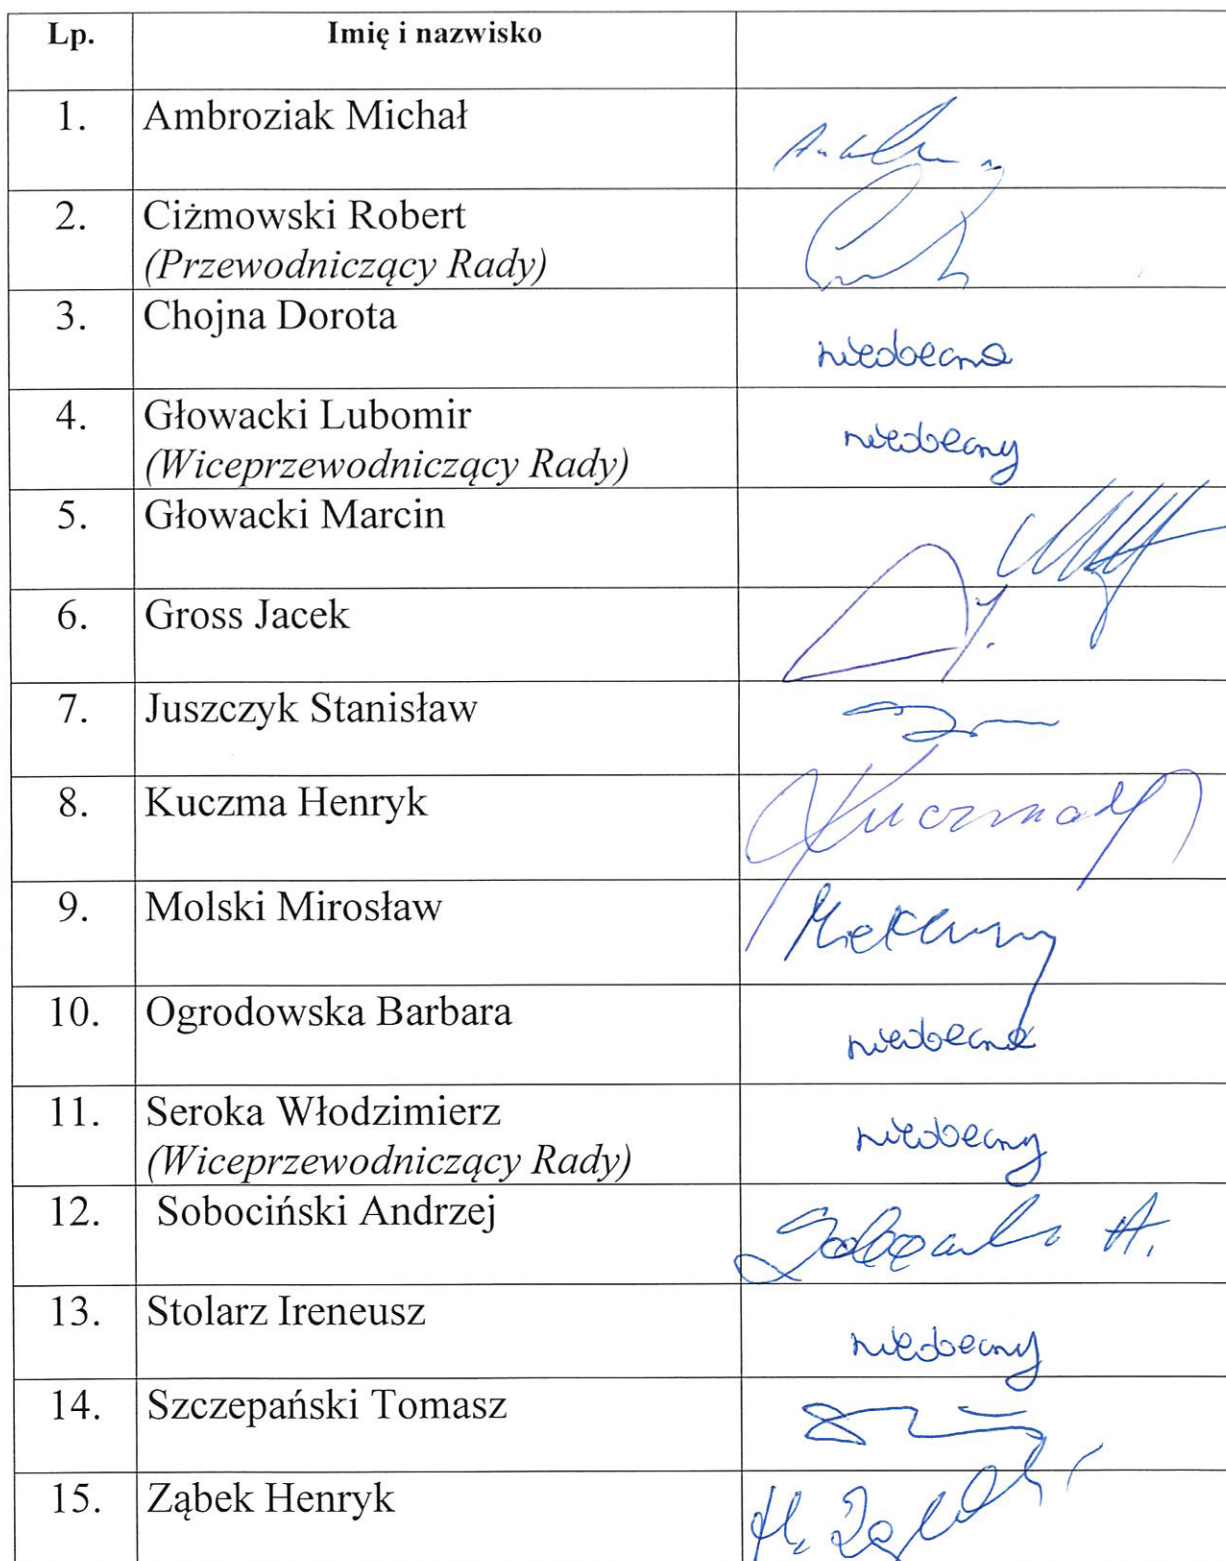 Lp. Imię i nazwisko
1. Ambroziak Michał
2. Ciżmowski Robert
(Przewodniczący Rady)
3. Chojna Dorota niedobecna
4. Głowacki Lubomir niedobecny
(Wiceprzewodniczący Rady)
5. Głowacki Marcin
6. Gross Jacek
7. Juszczyk Stanisław
8. Kuczma Henryk Kuczma
9. Molski Mirosław
10. Ogrodowska Barbara nieobecna
11. Seroka Włodzimierz nieobecny
(Wiceprzewodniczący Rady)
12. Sobociński Andrzej
13. Stolarz Ireneusz nieobecny
14. Szczepański Tomasz
15. Ząbek Henryk